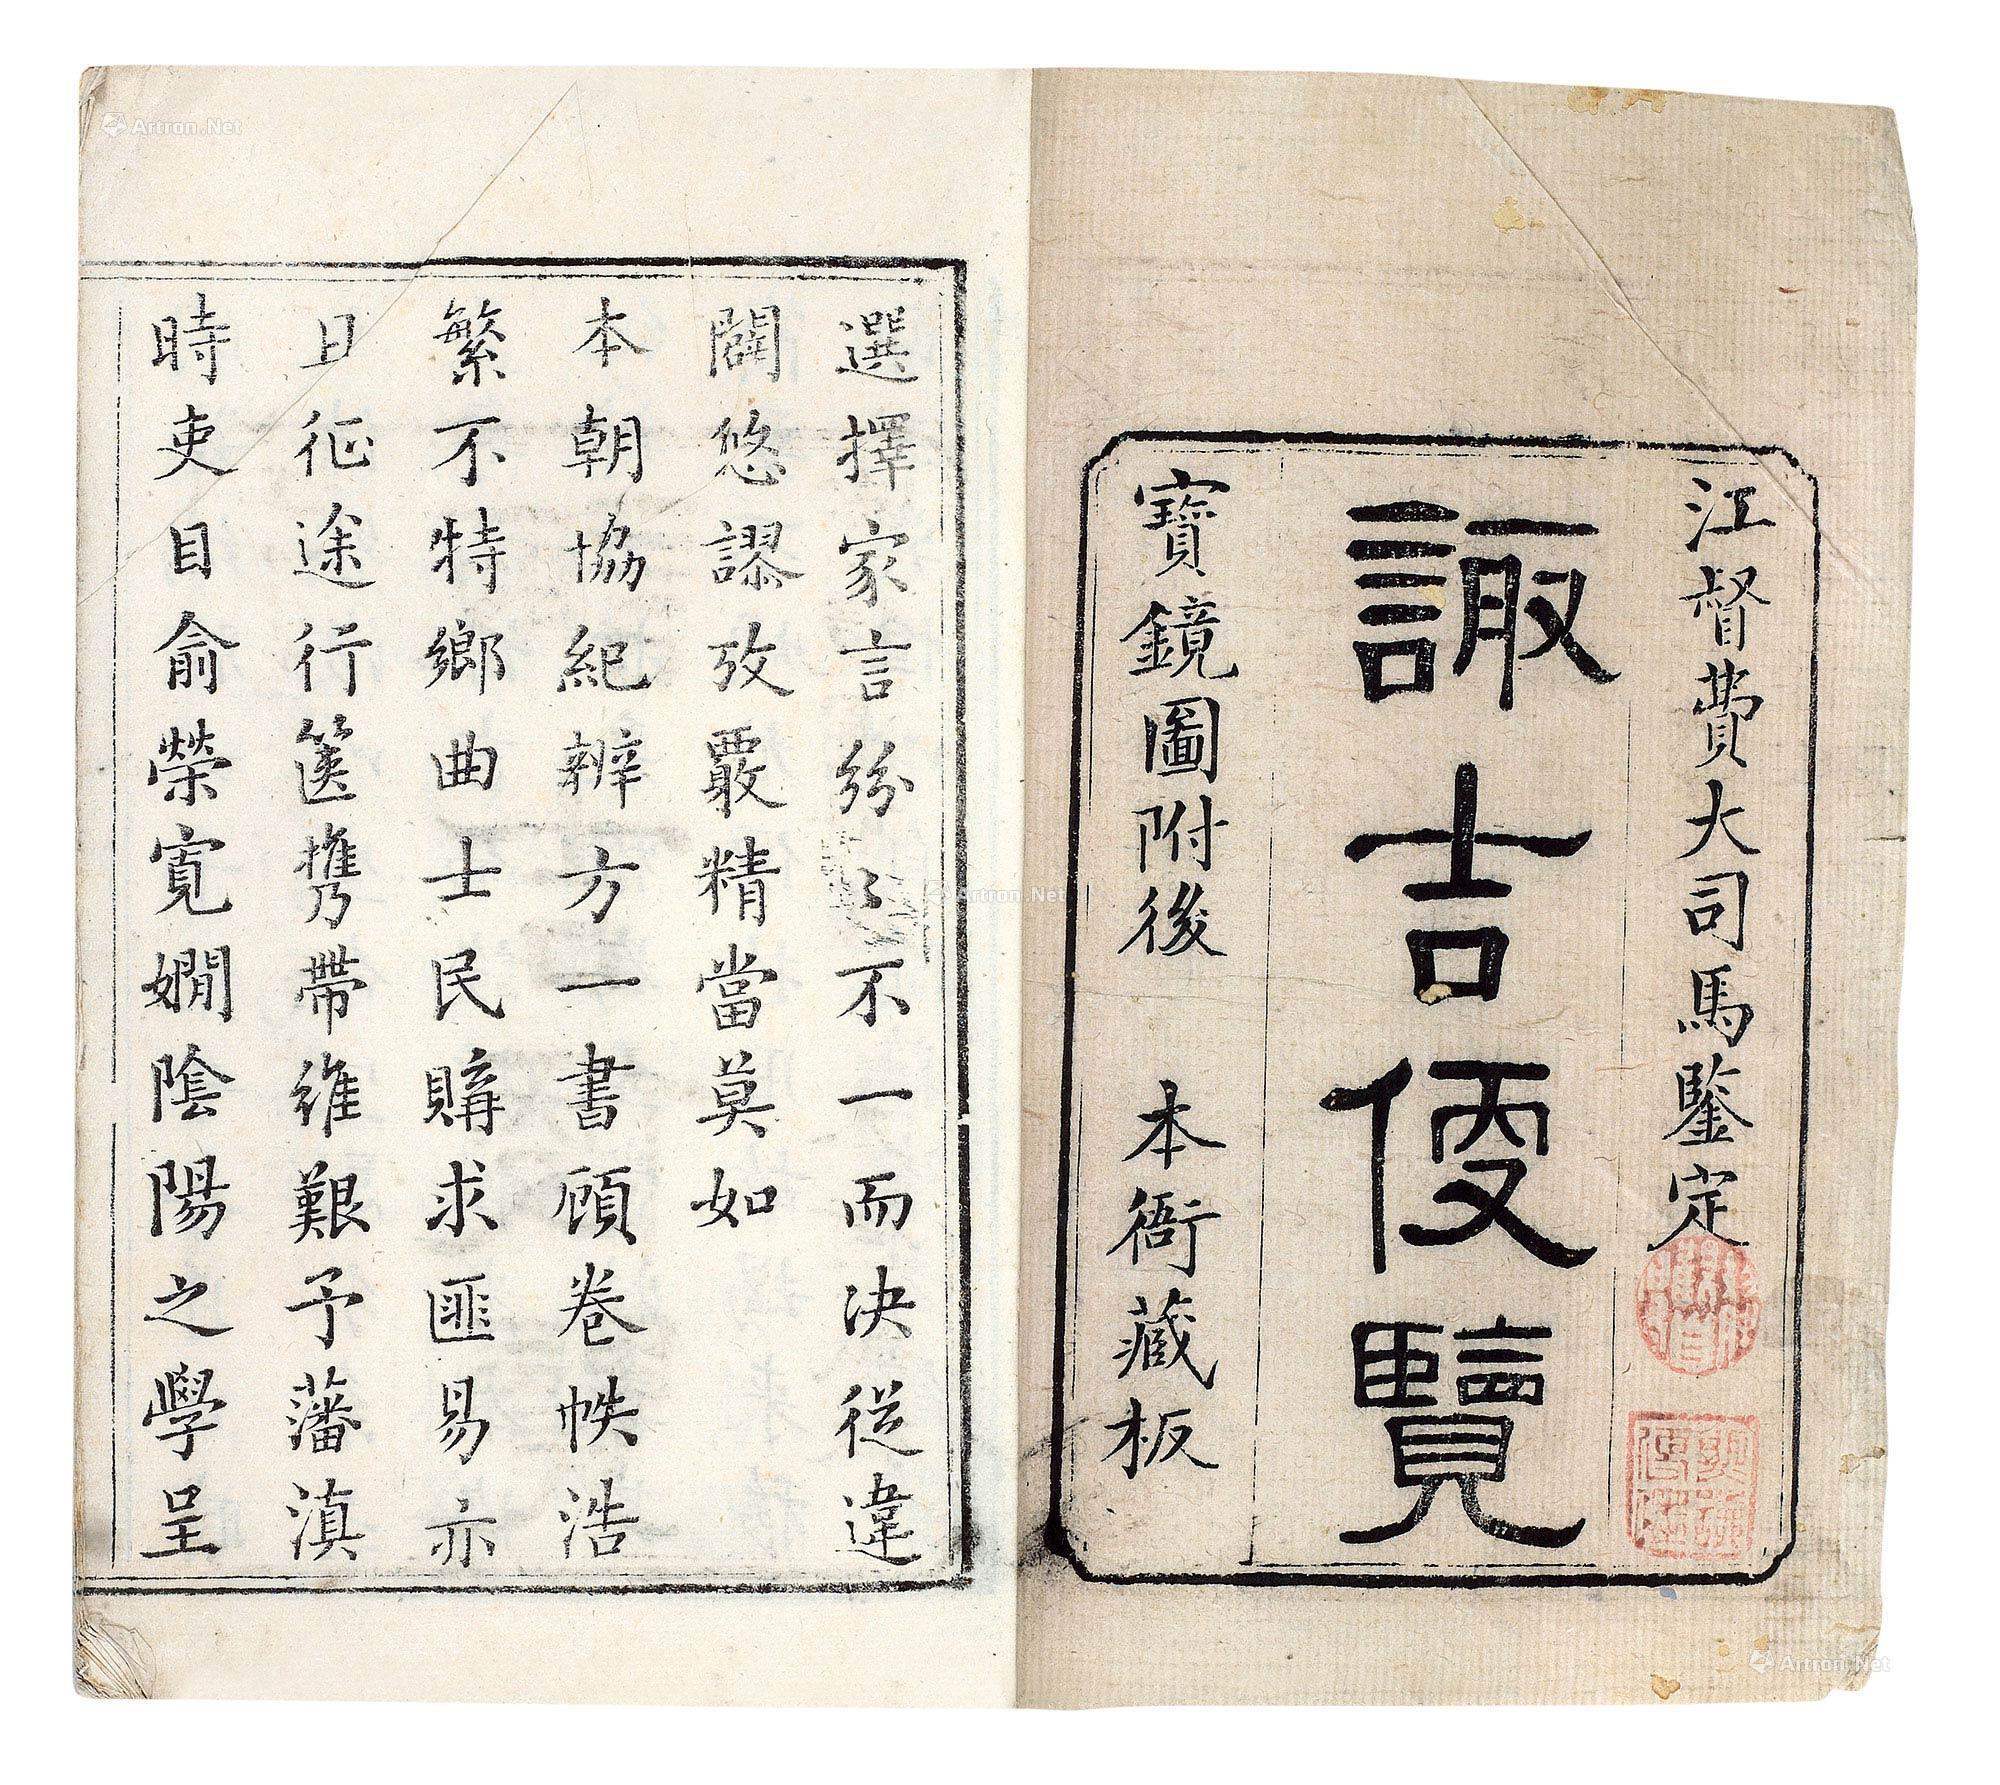 江督費大司馬鑒定
諏吉便覽
寶鏡圖附後　本衙藏板
選擇家言紛〻不一而決從違
闢悠謬攷覈精當莫如
本朝協紀辨方一書頋卷帙浩
繁不特鄉曲士民購求匪易亦
且征途行篋携帶維艱予藩滇
時吏目俞榮寬嫺陰陽之學呈
Artron.Net
Artron.Net
Artron.Net